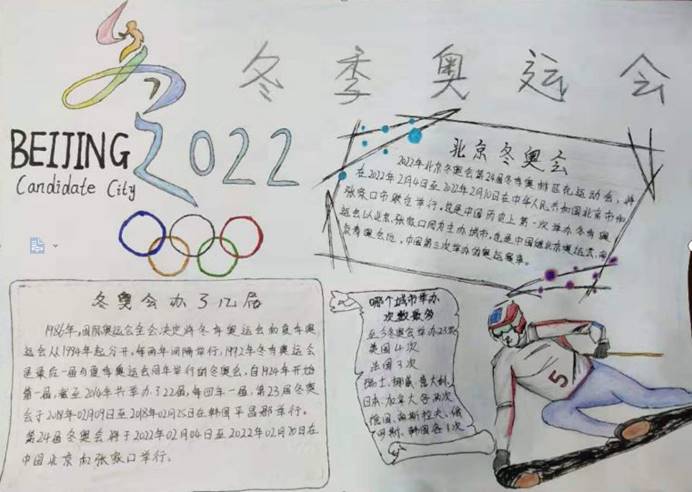 冬季奥运会
BEIJING 2022
Candidate City
北京冬奥会
2022年北京冬奥会第24届冬季奥林匹克运动会，将
在2022年2月4日至2022年2月20日在中华人民共和国北京市和
张家口市联合举行。这是中国历史上第一次举办冬季奥
运会以北京、张家口同为主办城市，也是中国继北京奥运会、南
京青奥会后，中国第三次举办的奥运赛事。
冬奥会办了几届
1986年，国际奥运会全会决定将冬季奥运会和夏季奥
运会从1994年起分开，每两年间隔举行，1992年冬季奥运会
是最后一届与夏季奥运会同年举行的冬奥会，自1924年开始
第一届，截至2014年共举办了22届，每四年一届。第23届冬奥
会于2018年02月09日至2018年02月25日在韩国平昌郡举行。
第24届冬奥会将于2022年02月04日至2022年02月20日在
中国北京和张家口举行。
哪个城市举办
次数最多
至今冬奥会举办23次
美国4次
法国3次
瑞士、挪威、意大利、
日本、加拿大各两次
德国、南斯拉夫、俄
罗斯、韩国各1次
5